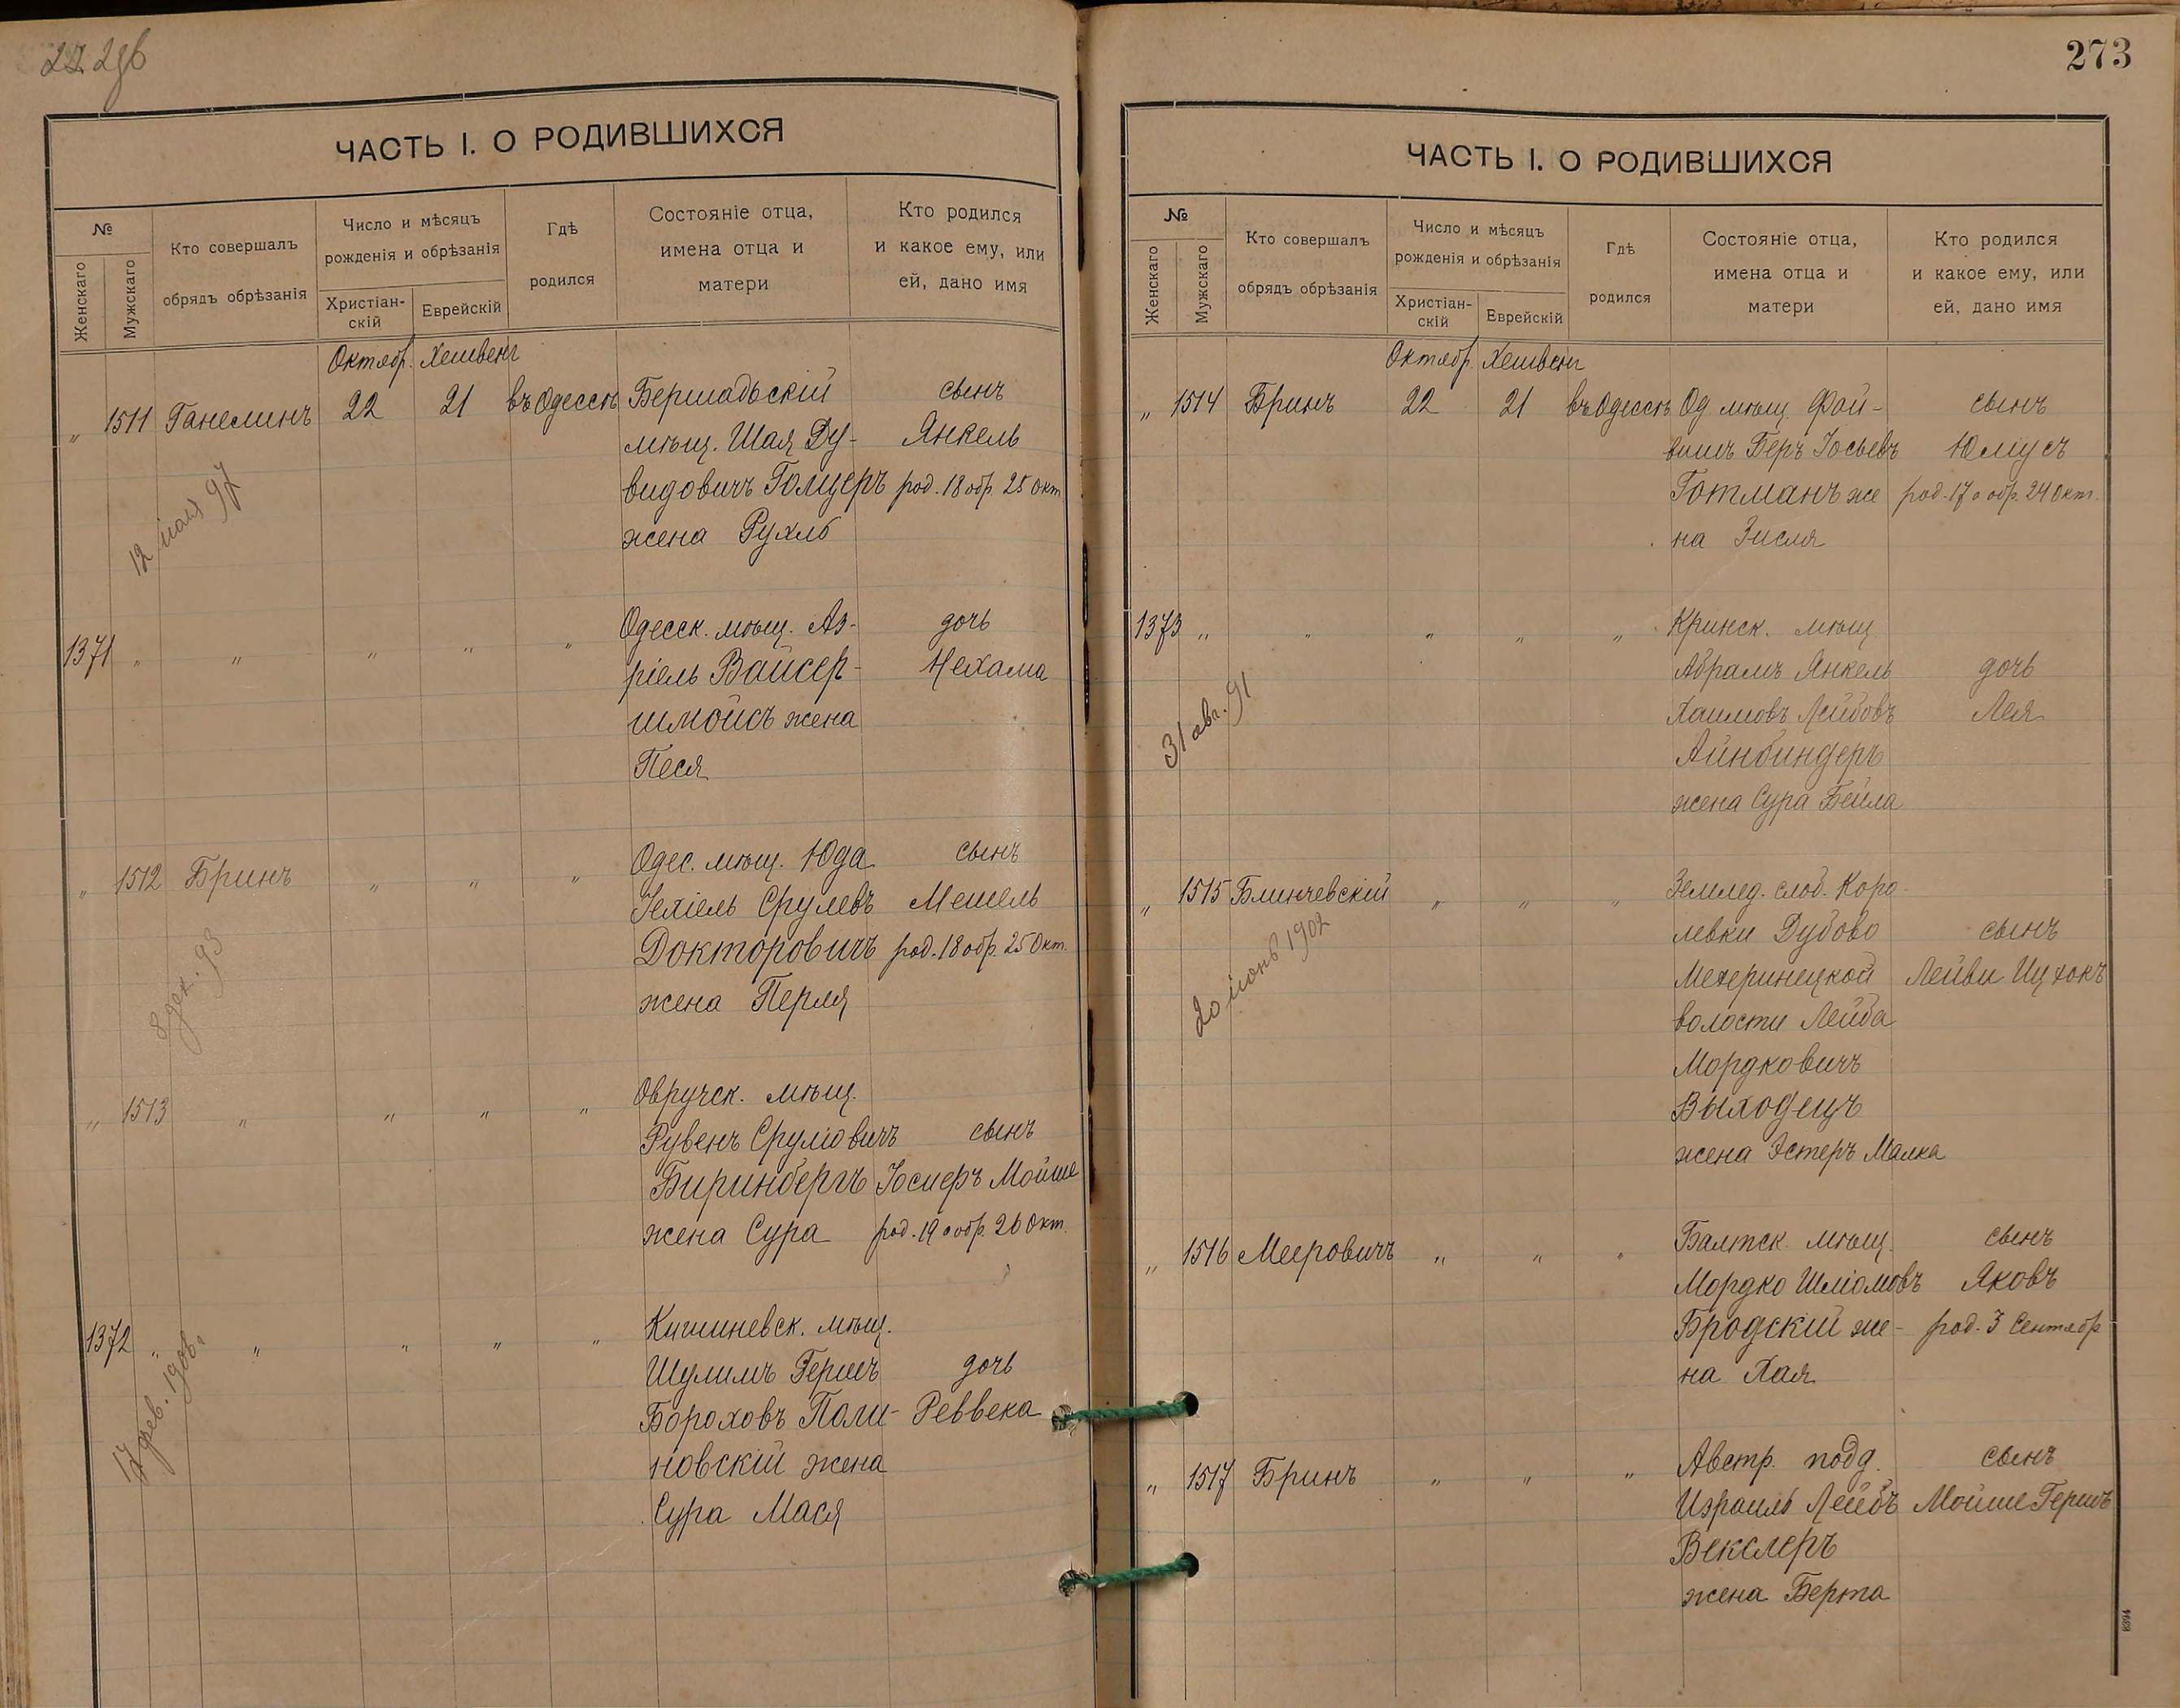 ЧАСТЬ I. О РОДИВШИХСЯ
№
Женскаго
Мужскаго
Кто совершалъ
обрядъ обрѣзанія
Число и мѣсяцъ
рожденія и обрѣзанія
Христіан-
скій
Еврейскій
Гдѣ
родился
Состояніе отца,
имена отца и
матери
Кто родился
и какое ему, или
ей, дано имя
Октябр. Хешвенг
„ 1511 Ганелинъ 22 21 въ Одессѣ Бершадьскій сынъ
мѣщ. Шая Ду- Янкель
видовичъ Голцеръ род. 18 обр. 25 Окт.
жена Рухль
12 97
1371 „ „ „ „ „ Одесск. мѣщ. Аз- дочь
ріель Вайсер- Нехама
шмойсъ жена
Песя
„ 1512 Бринъ „ „ „ Одес. мѣщ. Юда сынъ
Іехіель Срулевъ Мешель
Докторовичъ род. 18 обр. 25 Окт.
жена Перля
8 дек. 93
„ 1513 „ „ „ „ Овручск. мѣщ.
Рувенъ Срулiовичъ сынъ
Биринбергъ Іосиферъ Мойше
жена Сура род. 19 о обр. 26 Окт.
1372 „ „ „ „ „ Кишиневск. мѣщ.
Шулимъ Гершъ дочь
Бороховъ Поли- Реввека
новскій жена
Сура Мася
17 фев.
273
ЧАСТЬ I. О РОДИВШИХСЯ
№
Женскаго
Мужскаго
Кто совершалъ
обрядъ обрѣзанія
Число и мѣсяцъ
рожденія и обрѣзанія
Христіан-
скій
Еврейскій
Гдѣ
родился
Состояніе отца,
имена отца и
матери
Кто родился
и какое ему, или
ей, дано имя
Октябр. Хешвенг
„ 1514 Бринъ 22 21 въ Одессѣ Од. мѣщ. Фай- сынъ
вишъ Беръ Іосьевъ Юліусъ
Готманъ же род. 17 о обр. 24 Окт.
на Зисля
1373 „ „ „ „ „ Кринск. мѣщ.
Абрамъ Янкель дочь
Хаимовъ Лейбовъ Лея
Айнбиндеръ
жена Сура Бейла
31 авг. 91
„ 1515 Блинчевскій „ „ „ Землед. слоб. Коро-
левки Дубово сынъ
Мехеринецкой Лейви Ицхокъ
волости Лейба
Мордковичъ
Выходецъ
жена Эстеръ Малка
20 іюнь 1902
„ 1516 Мееровичъ „ „ „ Балтск. мѣщ. сынъ
Мордко Шліомовъ Яковъ
Бродскій же- род. 3 Сентябр
на Хая
„ 1517 Бринъ „ „ „ Австр. подд. сынъ
Израиль Лейбъ Мойше Гершъ
Векслеръ
жена Берта